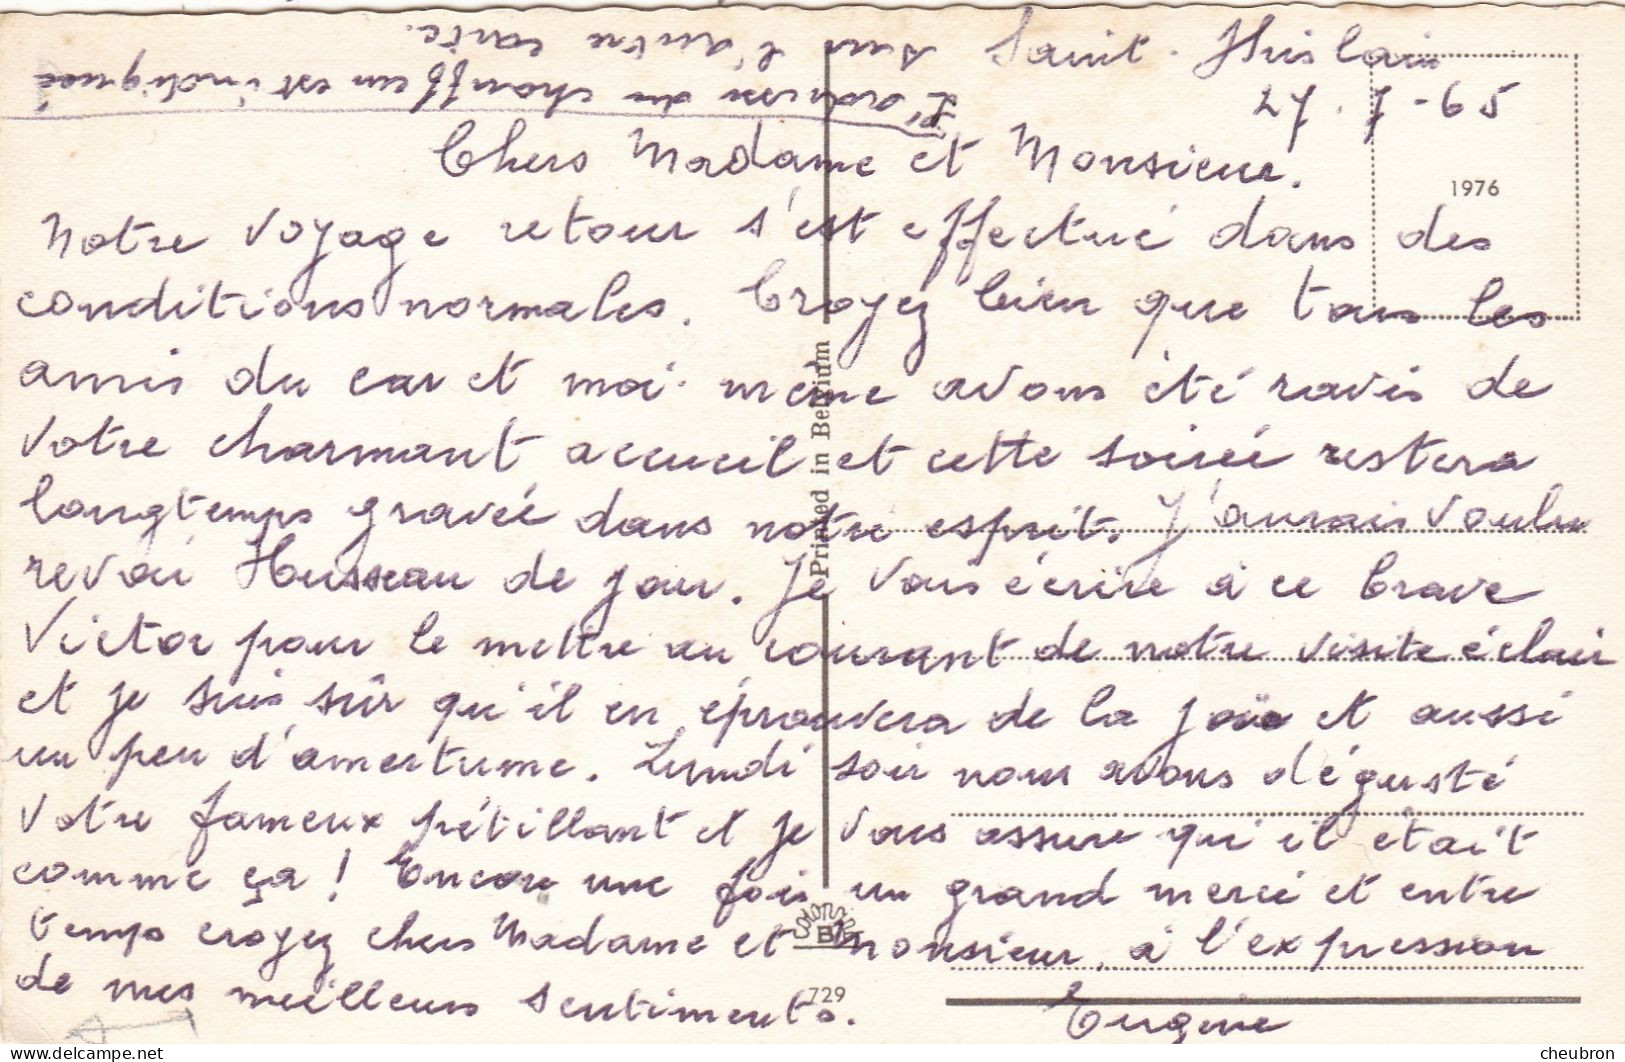 Saint-Ghislain
27.7-65
L'adresse du chauffeur est indiquée
sur l'autre carte.
Chers Madame et Monsieur.
1976
Notre voyage retour s'est effectué dans des
conditions normales. Croyez bien que tous les
amis du car et moi-même avons été ravis de
votre charmant accueil et cette soirée restera
longtemps gravée dans notre esprit. J'aurais voulu
revoir Housseau de jour. Je vous écrire à ce brave
Victor pour le mettre au courant de notre visite éclair
et je suis sûr qu'il en éprouvera de la joie et aussi
un peu d'amertume. Lundi soir nous avons dégusté
votre fameux pétillant et je vous assure qu'il était
comme ça ! Encore une fois un grand merci et entre
temps croyez chers Madame et Monsieur, à l'expression
de mes meilleurs sentiments.
Eugène
Printed in Belgium
729
cheubron
www.delcampe.net